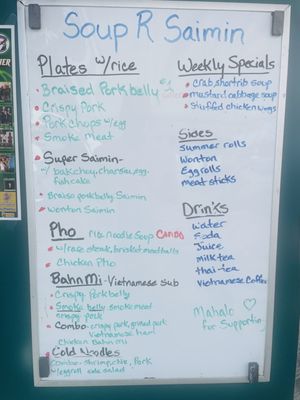 Soup R Saimin
Plates w/rice
Braised Porkbelly #1
Crispy Pork
Pork Chops w/egg
Smoke meat
Super Saimin-
w/ bak choy, charsiu, egg,
fishcake
Braise porkbelly Saimin
Wonton Saimin
Pho rice noodle Soup
w/rare steak, brisket, meatballs
Chicken Pho
Bahn Mi - Vietnamese Sub
Crispy Porkbelly
Smoke belly, smoke meat
crispy pork
Combo- crispy pork, grilled pork
Vietnamese ham
Chicken Bahn Mi
Cold Noodles
Combo- shrimp, chix, Pork
w/eggroll side salad
Weekly Specials
Crab, shortrib soup
mustard cabbage soup
stuffed chicken wings
Sides
Summer rolls
Wonton
Eggrolls
meat sticks
Drinks
Water
Soda
Juice
milk tea
thai-tea
Vietnamese Coffee
Mahalo
for Supportin